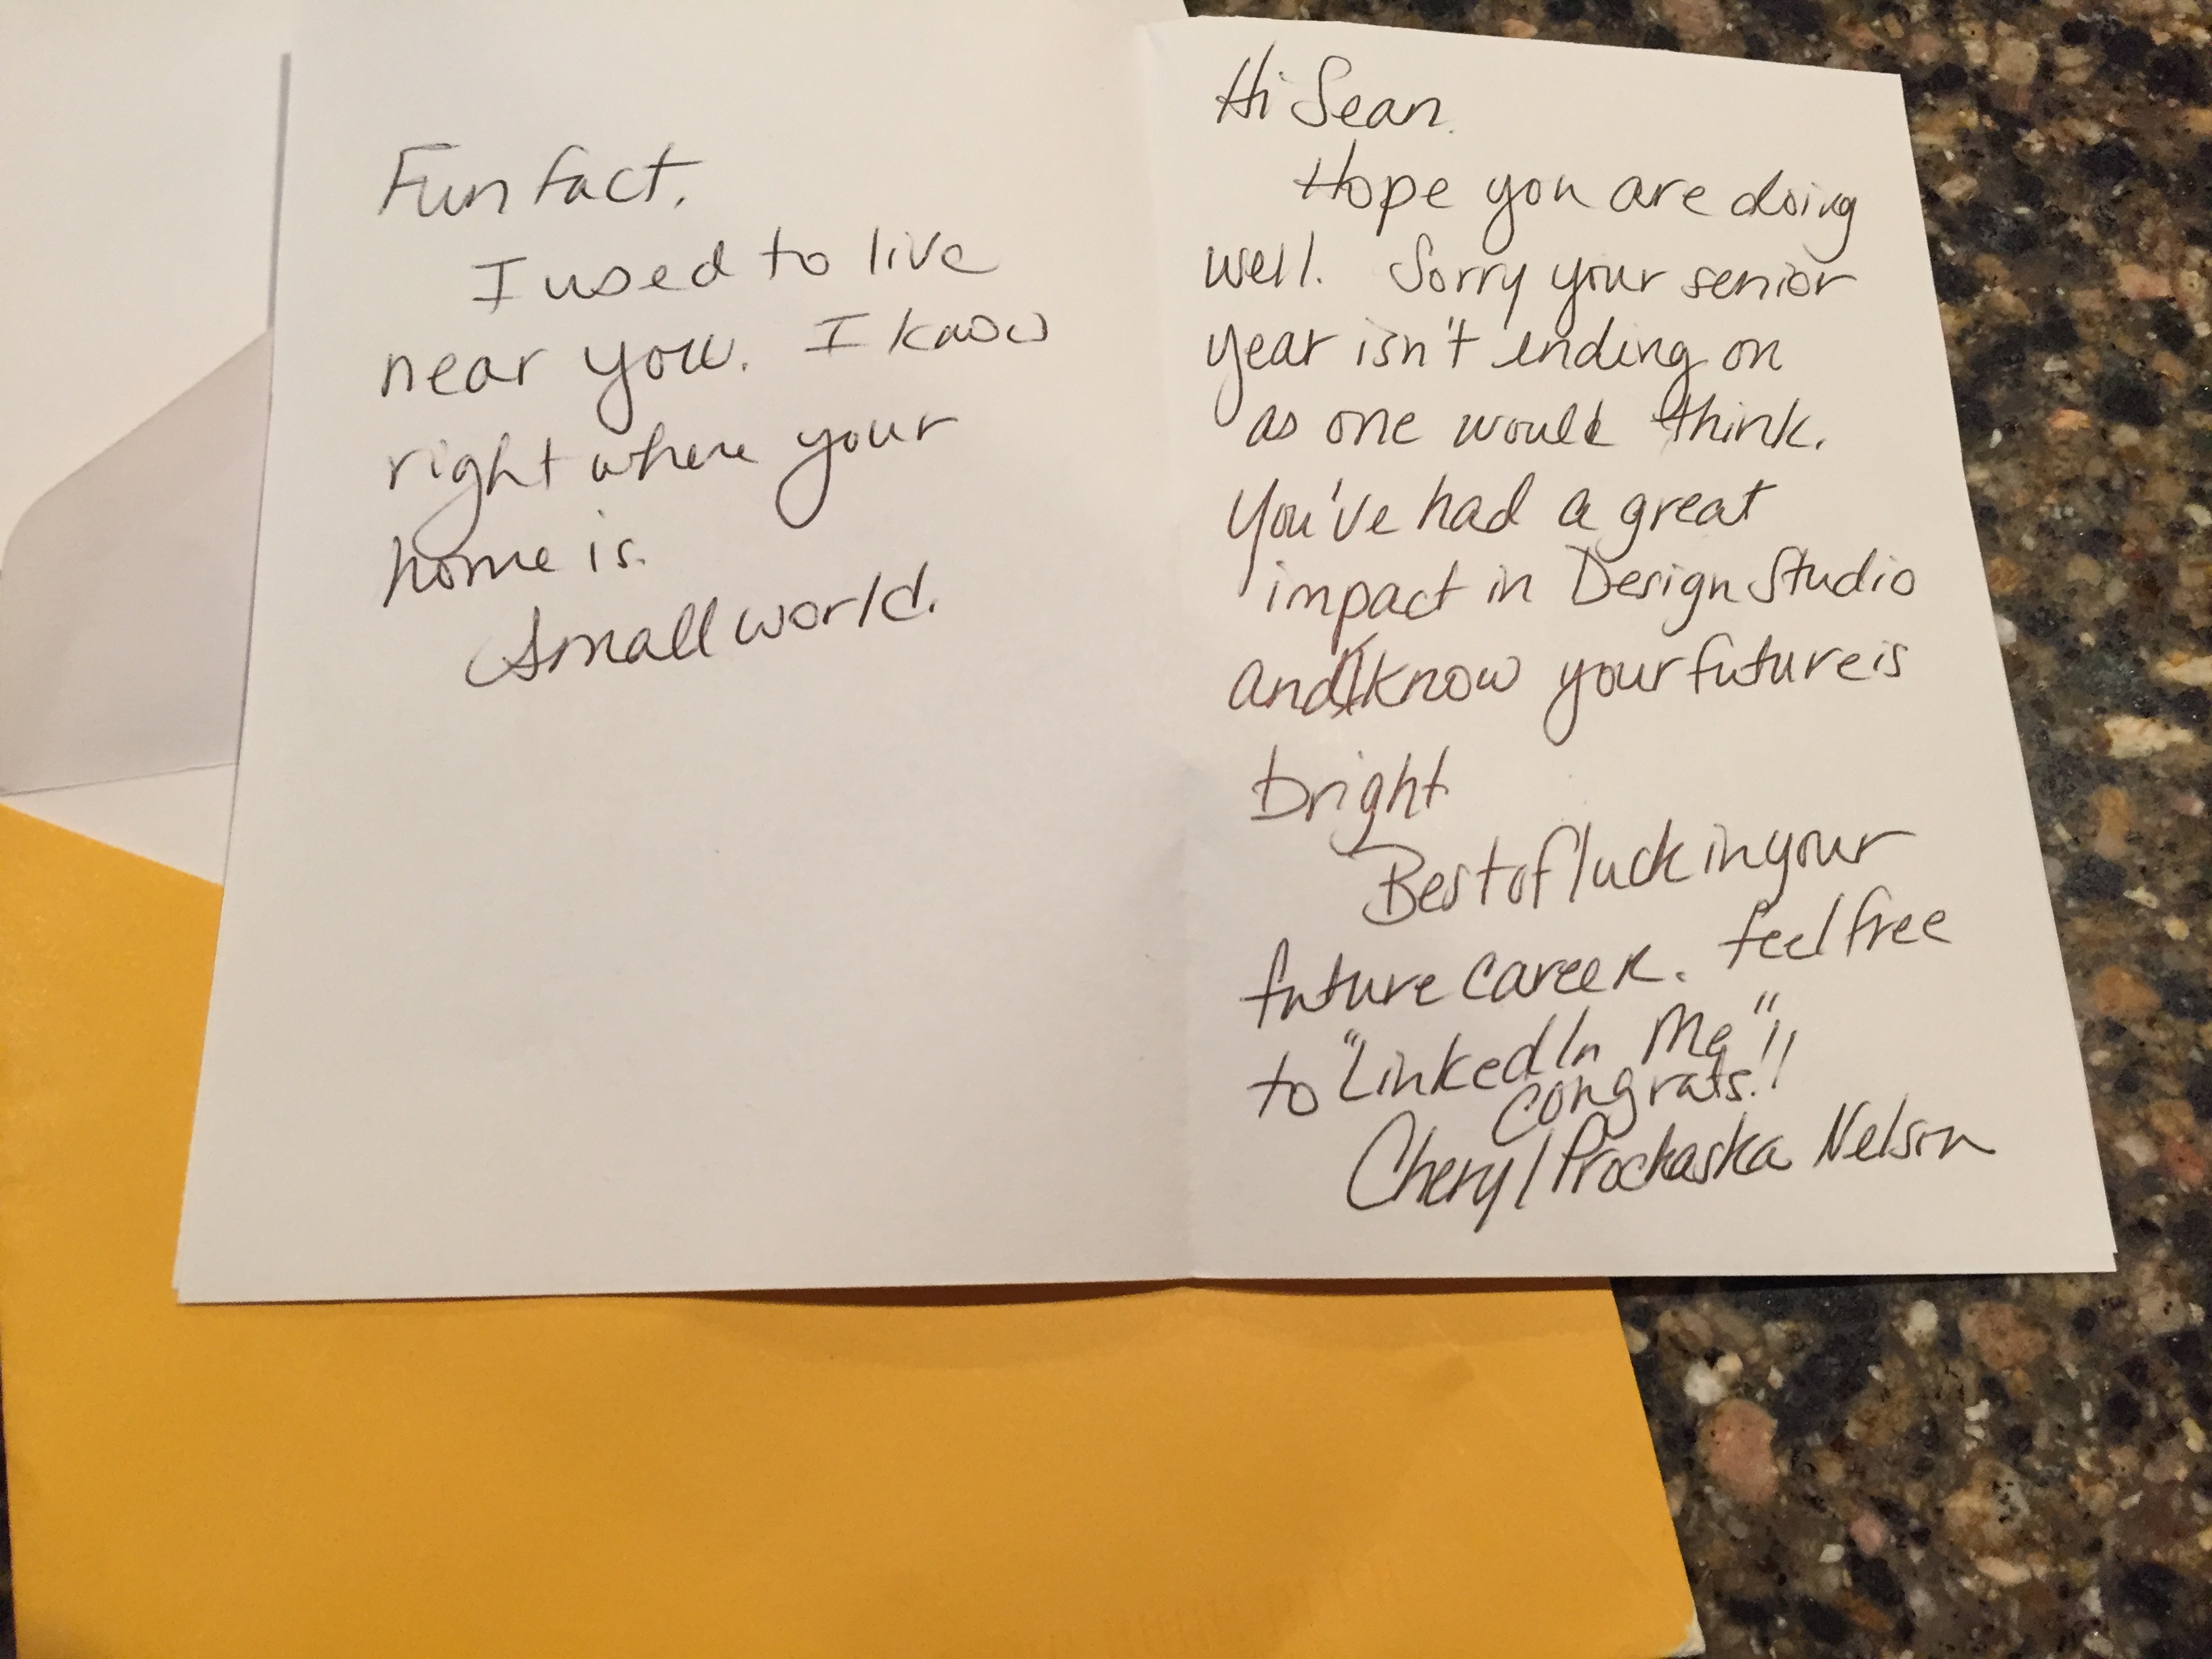 Fun fact.
I used to live
near you. I know
right where your
home is.
Small world.
Hi Sean.
Hope you are doing
well. Sorry your senior
year isn't ending on
as one would think.
You've had a great
impact in Design Studio
and I know your future is
bright
Best of luck in your
future career. feel free
to "LinkedIn Me"!!
Congrats!!
Cheryl Prochaska Nelson